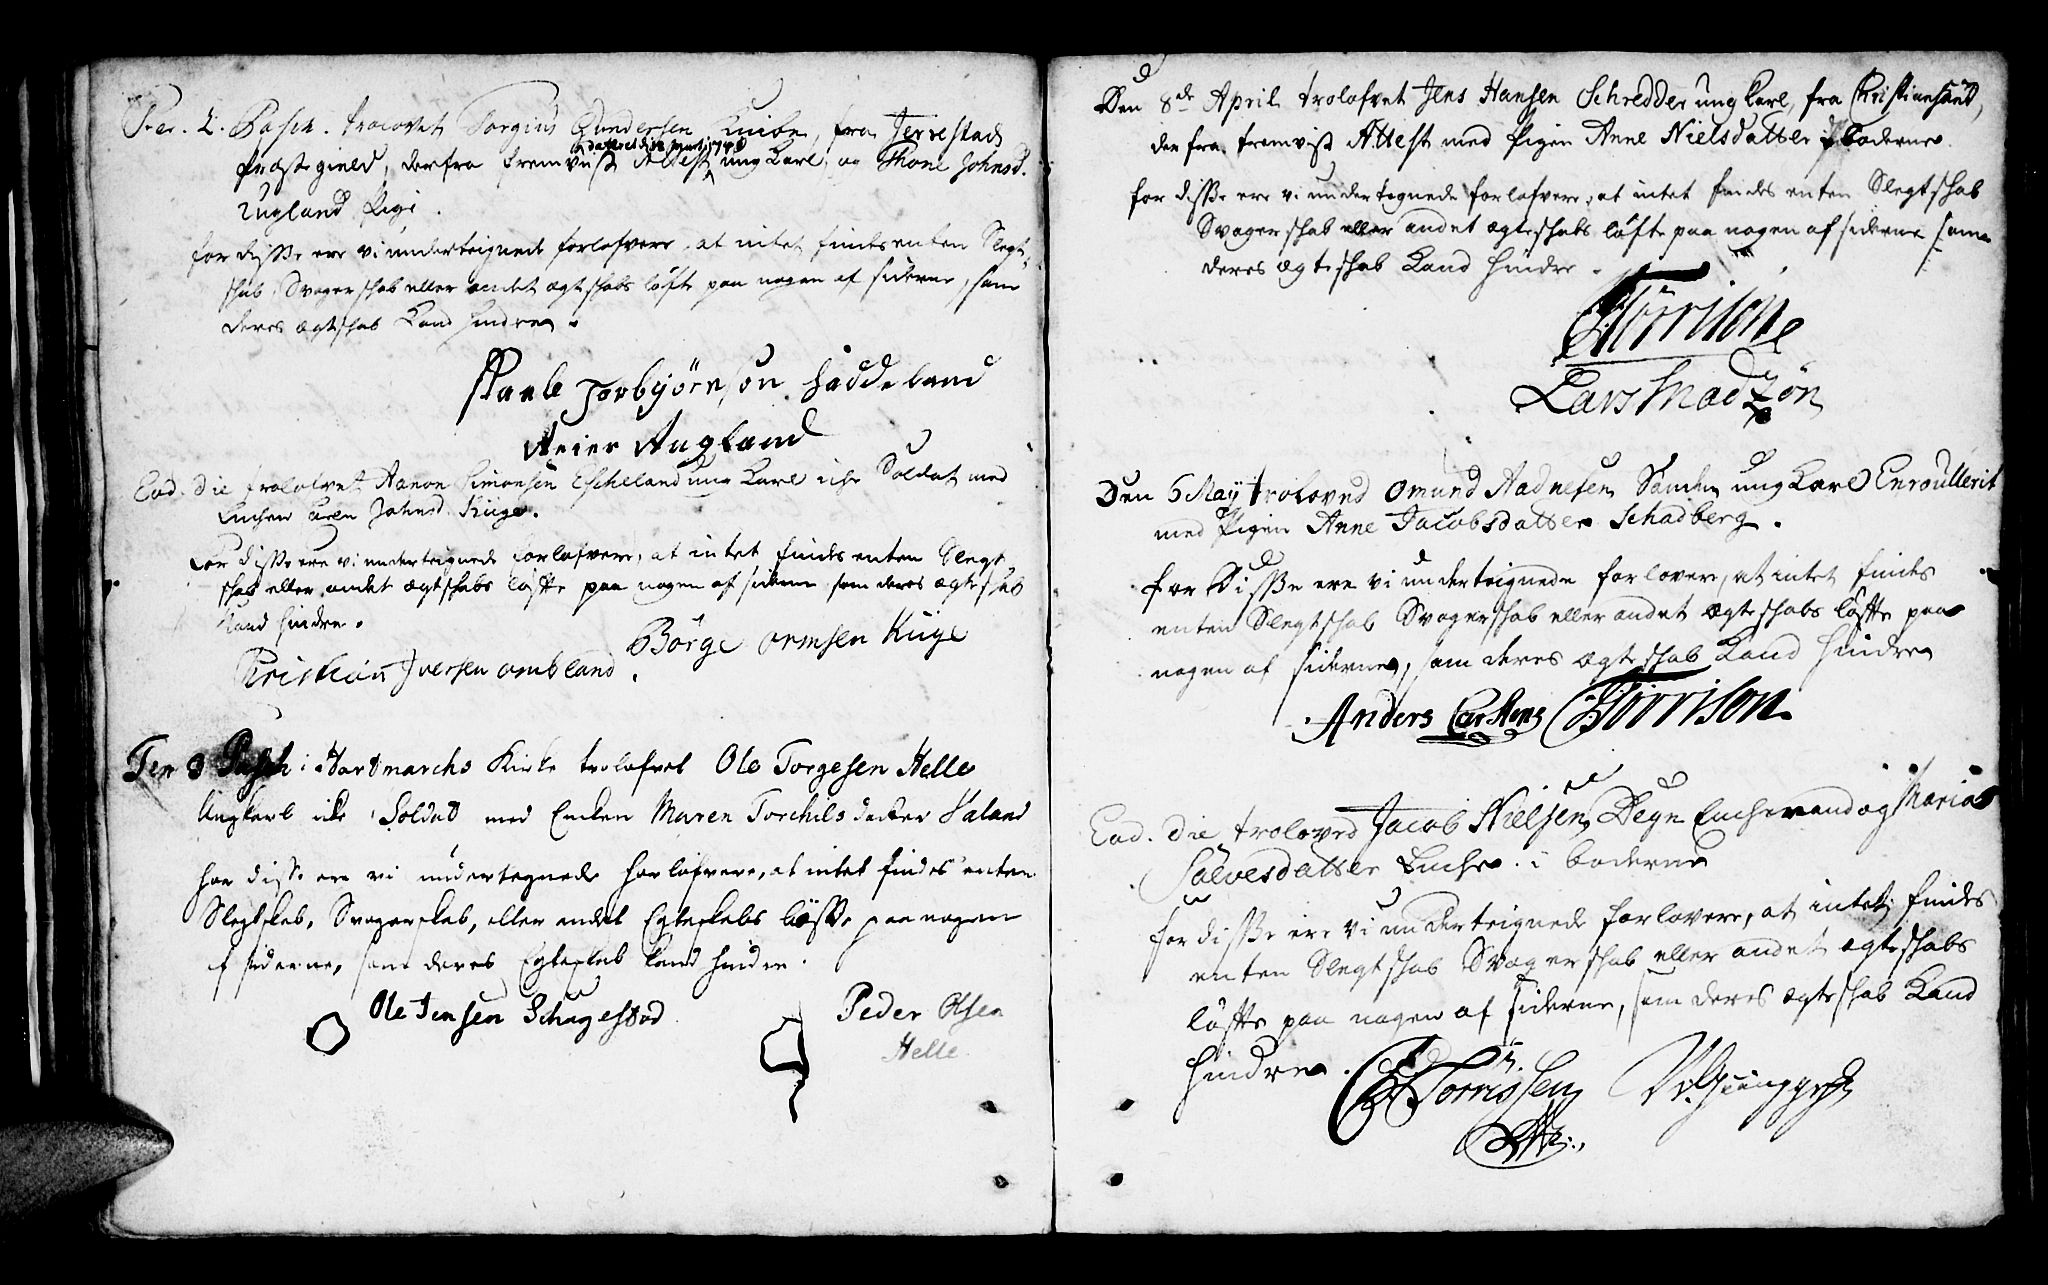 Fer. 2. Pasch. trolovet Torgius Gundersen Quibe, fra Jerrestad
dateret d. 12 Martj 1748
præstegield, derfra fremvist Attest ung Karl, og Thone Johnsd.
Augland Pige.
for disse ere vi underteignede forlofvere, at intet findes enten Slegt-
skab, Svogerskab eller andet ægteskabs løfte paa nogen af siderne, som
deres ægteskab Kand hindre.
Paale Torbjørnsøn haddeland
Reier Augland
Eod. die trolofvet Aanon Simonsen Escheland ung Karl iche Soldat med
Enchen Karen Johnsd. Kuige.
for disse ere vi underteignede forlofvere, at intet findes enten Slegt
skab eller andet ægteskabs løfte paa nogen af siderne som deres ægteskab
Kand hindre.
Børge ormsen Kuige
Christian Iversen ombland.
Fer 3 Pasch: i Hartmarchs Kirke trolofvet Ole Torgesen Helle
Ungkarl icke Soldat med Encken Maren Torchilsdatter Valand
for disse ere vi undertegnede forlofvere, at intet findes enten
Slegtskab, Svogerskab, eller andet Egteskabs løffte paa nogen
af siderne, som deres Egteskab kand hindre.
Ole Jensen Schagestad
Peder Olsen
Helle
Den 8de April trolofvet Jens Hansen Schredder ung Karl, fra Christiansand,
der fra fremvist Attest med Pigen Anne Nielsdatter i boderne
for disse ere vi undertegnede forlofvere, at intet findes enten Slegtskab
Svogerskab eller andet ægteskabs løfte paa nogen af siderne som
deres ægteskab Kand hindre.
Tørrison
Lars Madzøn
Den 5 May troloved Omund Aadnesen Sanden ung Karl Enroullerit
med Pigen Anne Jacobsdatter Schadberg.
for Disse ere vi underteignede forlovere, at intet findes
enten Slegtskab Svogerskab eller andet ægteskabs løffte paa
nogen af siderne, som deres ægteskab Kand hindre
Anders Carstens Tørrison
Eod. die troloved Jacob Nielsen Degn Enchemand og Maria
Salvesdatter Enche i boderne
for disse ere vi underteignede forlovere, at intet findes
enten Slegtskab Svogerskab eller andet ægteskabs
løffte paa nogen af siderne, som deres ægteskab Kand
hindre.
Tørrissen